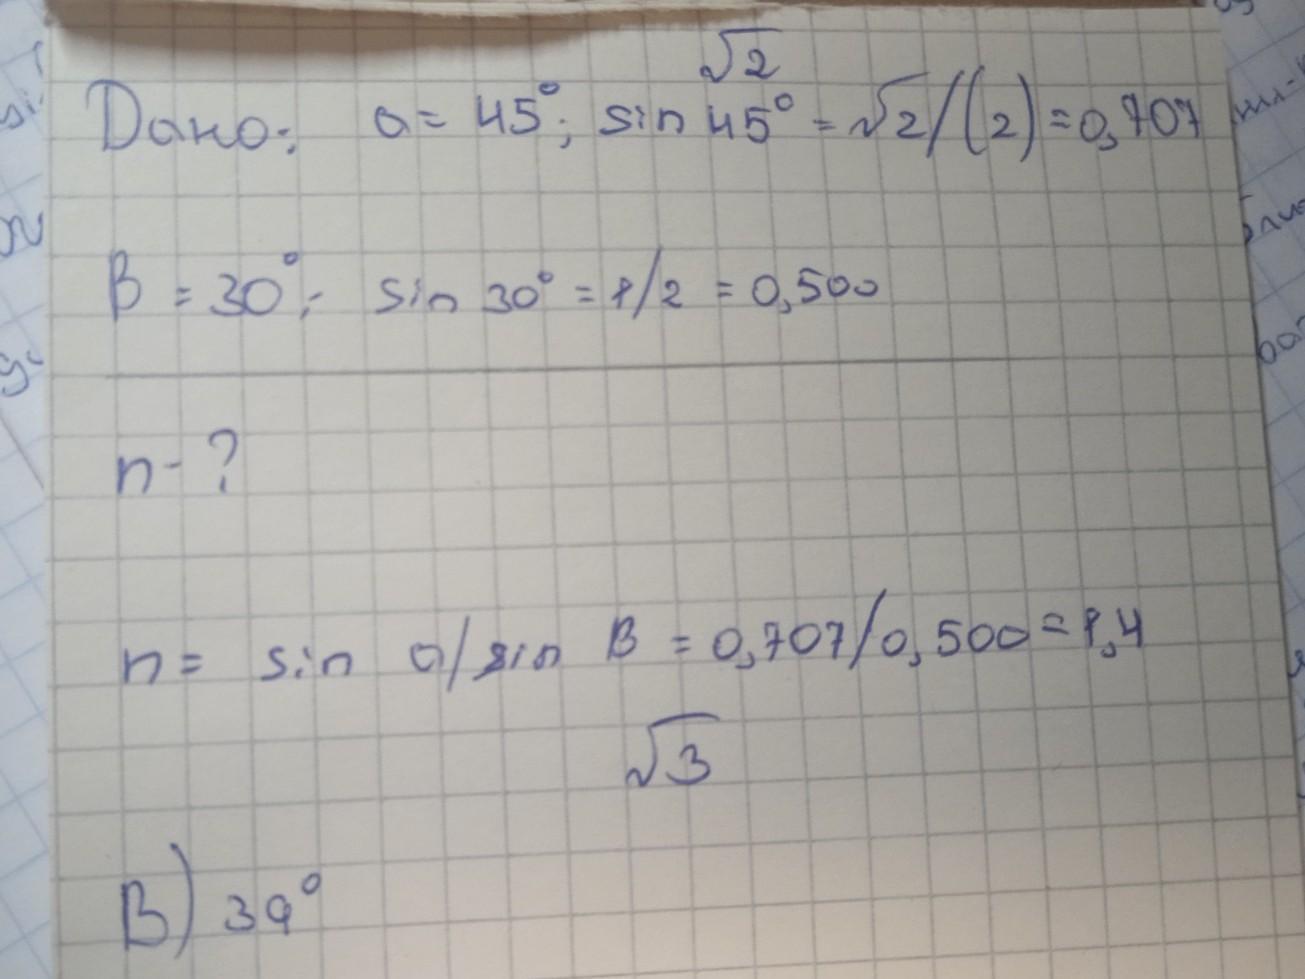 √2
Дано: a = 45°; sin 45° = √2/(2) = 0,707
B = 30°; sin 30° = 1/2 = 0,500
n - ?
n = sin a/sin B = 0,707/0,500 = 1,4
√3
B) 39°